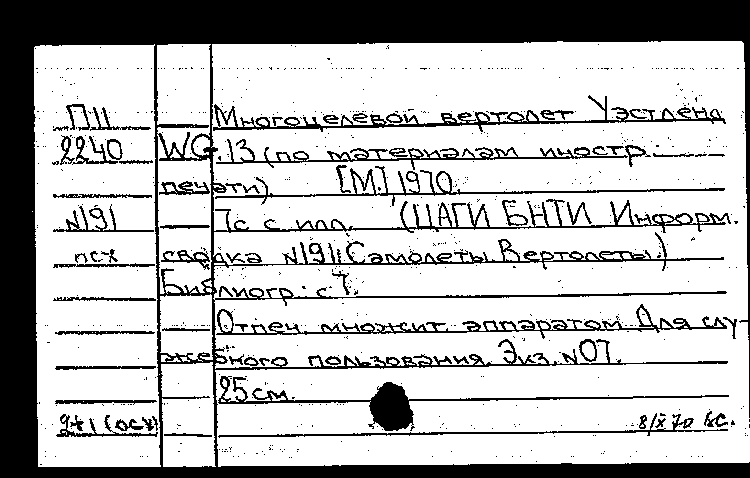 ПII Многоцелевой вертолет Уэстленд
2240 WG.13 (по материалам иностр.
печати). [М.] 1970.
№191 7с с илл. (ЦАГИ БНТИ Информ.
псх сводка №191: Самолеты. Вертолеты.)
Библиогр: с 7.
Отпеч. множит аппаратом Для слу-
жебного пользования. Экз. №07.
25см.
2+1 (осх) 8/X 70